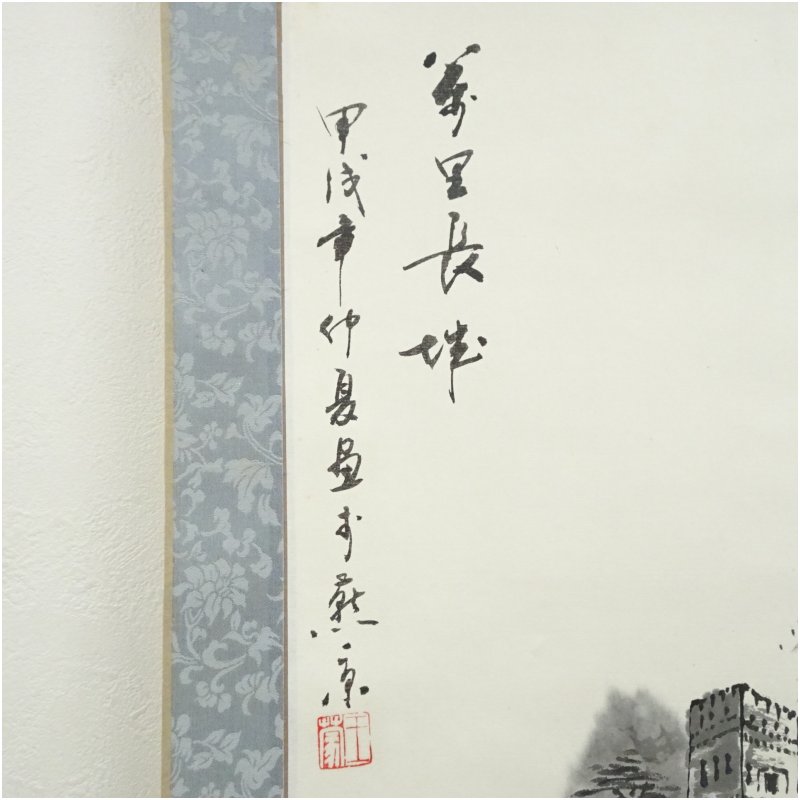 萬里長城
甲戌年仲夏畫於燕京